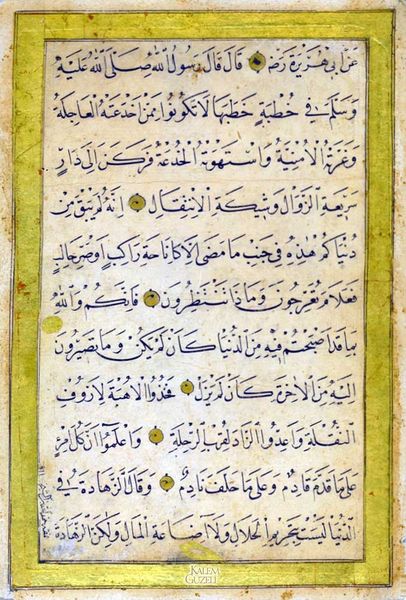 عن ابي هريرة رضه قال قال رسول الله صلى الله عليه
وسلم في خطبة خطبها لا تكونوا ممن اخدعته العاجلة
وغرته الامنية واستهوته الخدعة فركن الى دار
سريعة الزوال وشيكة الانتقال انه لم يبق من
دنياكم هذه في جنب ما مضى الا كاناحة راكب او صر حالب
فعلام تعرجون وماذا تنتظرون فانكم والله
بما قد اصبحتم فيه من الدنيا كان لم يكن وما تصيرون
اليه من الاخرة كان لم يزل فخذوا الاهبة لازوف
النقلة واعدوا الزاد لقرب الرحلة واعلموا ان كل امرئ
على ما قدم قادم وعلى ما خلف نادم وقال الزهادة في
الدنيا ليست بتحريم الحلال ولا اضاعة المال ولكن الزهادة
KALEM GÜZELİ